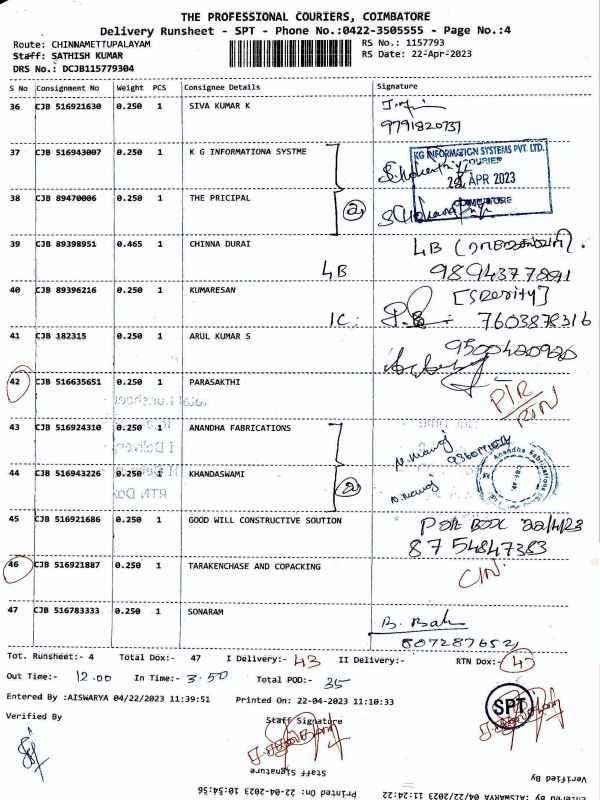 THE PROFESSIONAL COURIERS, COIMBATORE
Delivery Runsheet - SPT - Phone No.:0422-3505555 - Page No.:4
Route: CHINNAMETTUPALAYAM
RS No.: 1157793
Staff: SATHISH KUMAR
RS Date: 22-Apr-2023
DRS No.: DCJB115779304
S No Consignment No Weight PCS Consignee Details Signature
36 CJB 516921630 0.250 1 SIVA KUMAR K
9791820737
37 CJB 516943007 0.250 1 K G INFORMATIONA SYSTME
KG INFORMATION SYSTEMS PVT. LTD.
COURIER
APR 2023
COIMBATORE
38 CJB 89470006 0.250 1 THE PRICIPAL
2
39 CJB 89398951 0.465 1 CHINNA DURAI
4B
4B
9894377891
40 CJB 89396216 0.250 1 KUMARESAN
1C:
7603878316
41 CJB 182315 0.250 1 ARUL KUMAR S
9500420920
42 CJB 516635651 0.250 1 PARASAKTHI
43 CJB 516924310 0.250 1 ANANDHA FABRICATIONS
N. Manoj
Anandha Fabrications
44 CJB 516943226 0.250 1 KHANDASWAMI
2
N. Manoj
45 CJB 516921686 0.250 1 GOOD WILL CONSTRUCTIVE SOUTION
22/4/23
8754847383
46 CJB 516921887 0.250 1 TARAKENCHASE AND COPACKING
47 CJB 516783333 0.250 1 SONARAM
Tot. Runsheet:- 4 Total Dox:- 47 I Delivery:- 43 II Delivery:- RTN Dox:- 4
Out Time:- 12.00 In Time:- 3.50 Total POD:- 35
Entered By :AISWARYA 04/22/2023 11:39:51 Printed On: 22-04-2023 11:10:33
Verified By
Staff Signature
SPT
Staff Signature
Verified By
Printed On: 22-04-2023 10:54:56
Entered By :AISWARYA 04/22/2023 11:24:22